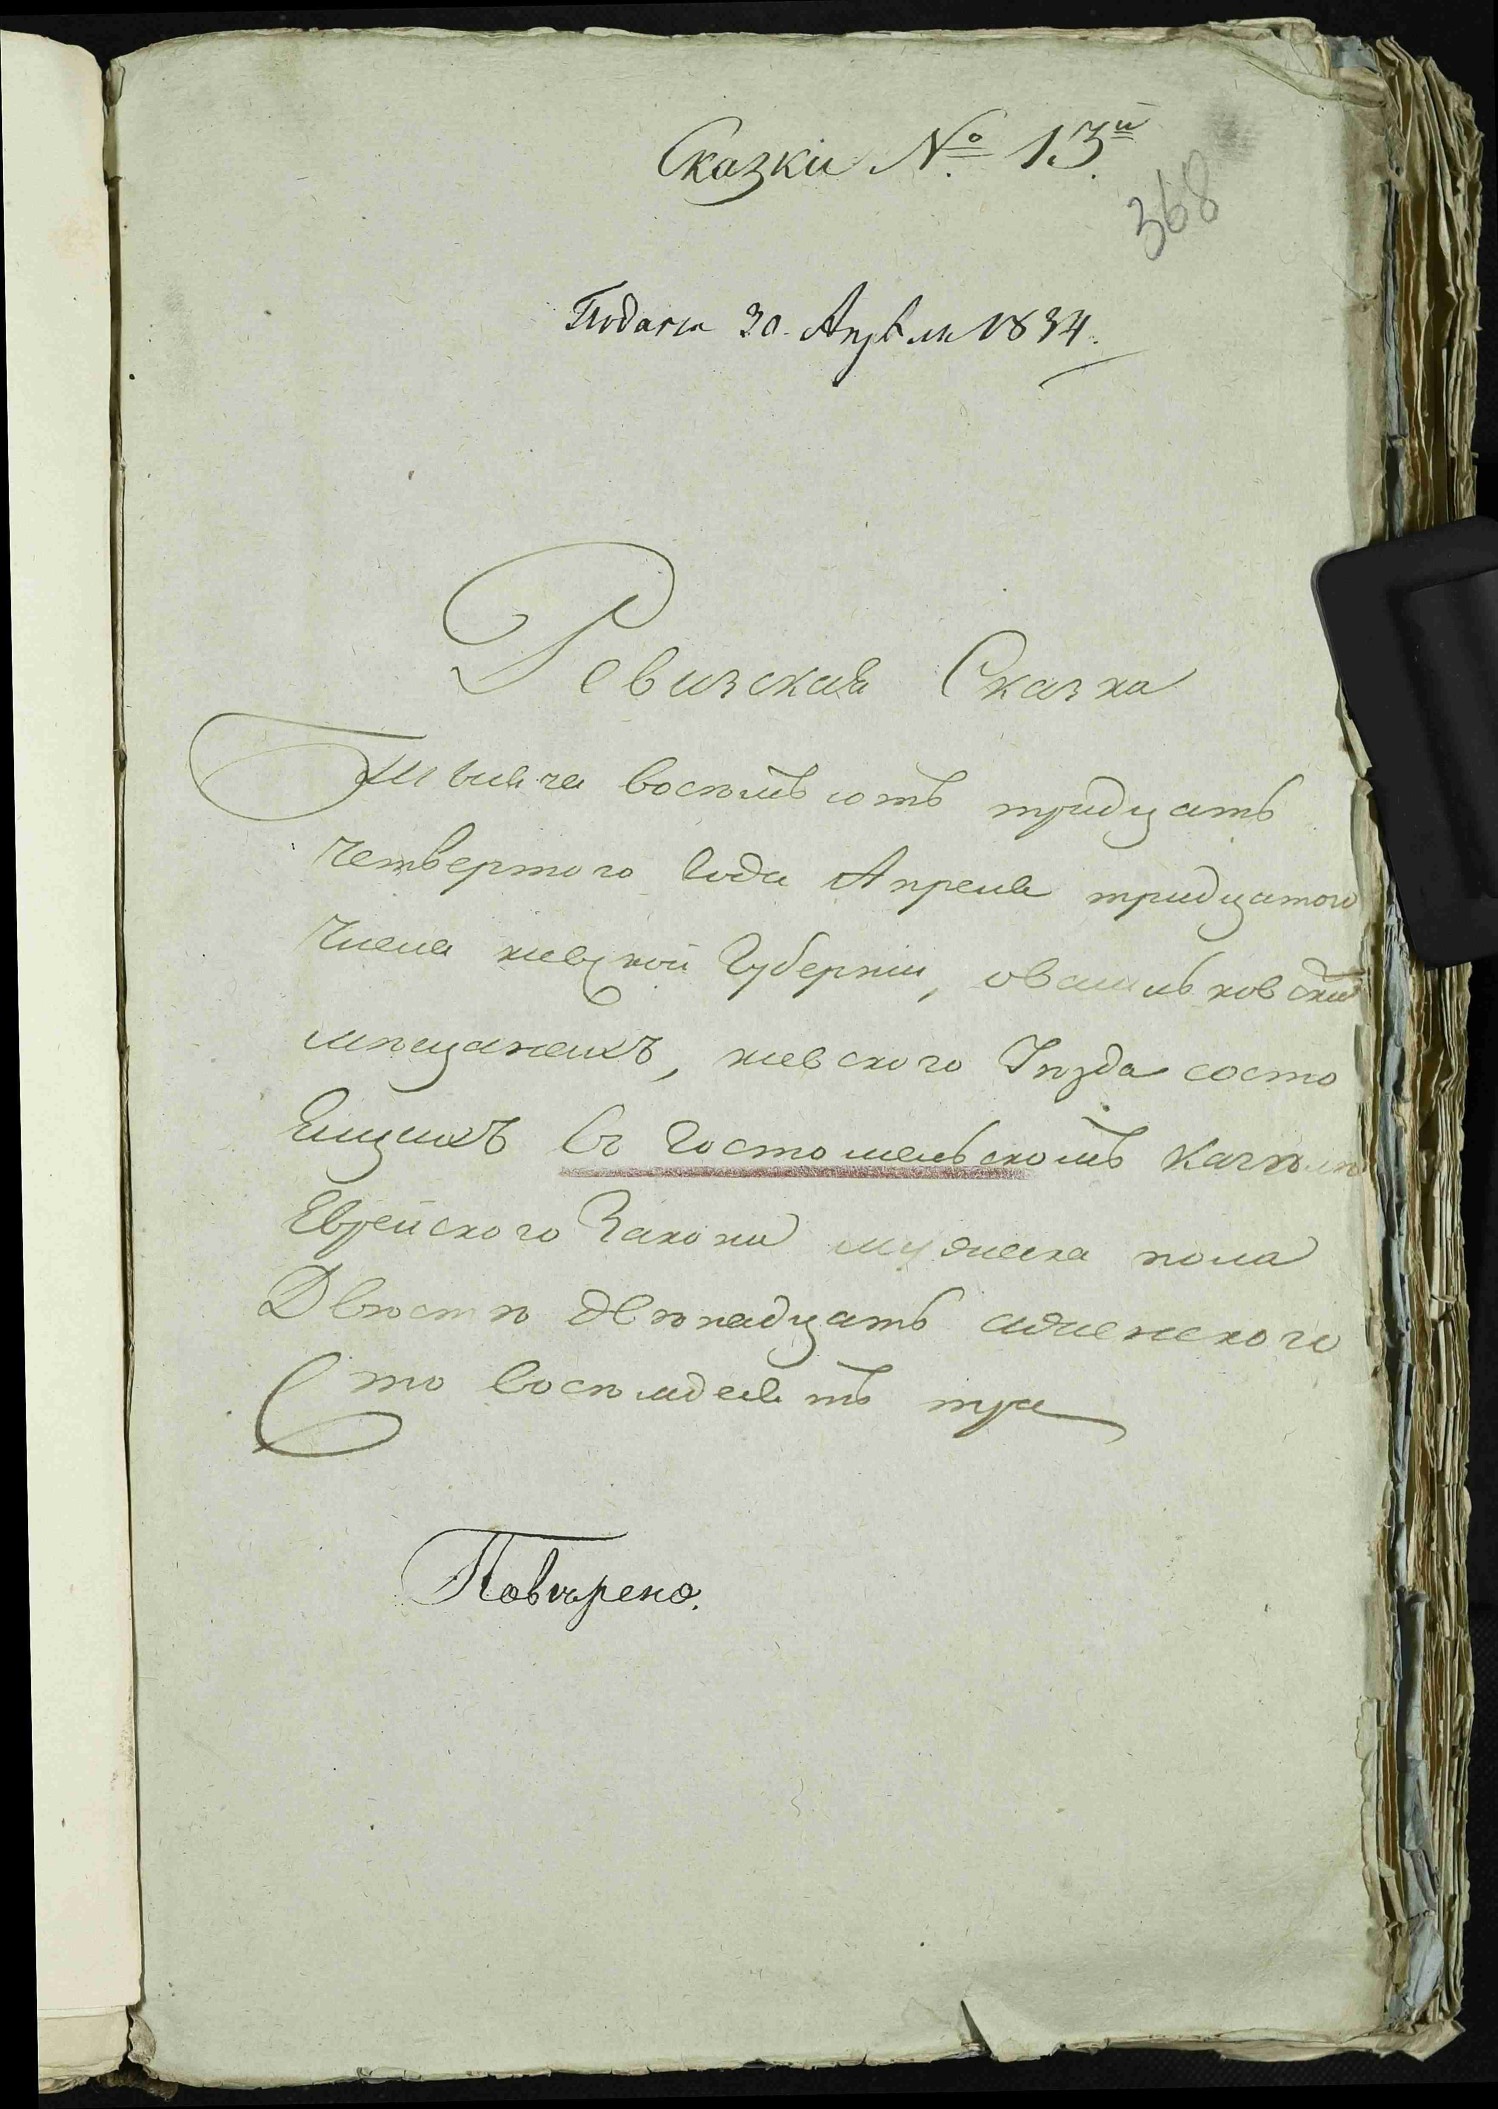 Сказки № 13й
368
Подана 30. Апреля 1834.
Ревизская Сказка
Тысяча восемъ сотъ тридцать
четвертого Года Апреля тридцатого
числа киевской Губернии, оВасильковскихъ
мпщанахъ, киевского Упзда состо
Ящихъ въ Гостомельскомъ Кагалп
Еврейского Закона мужеска пола
Двпстп двпнадцать аженского
Сто восемдесятъ три
Поверено.